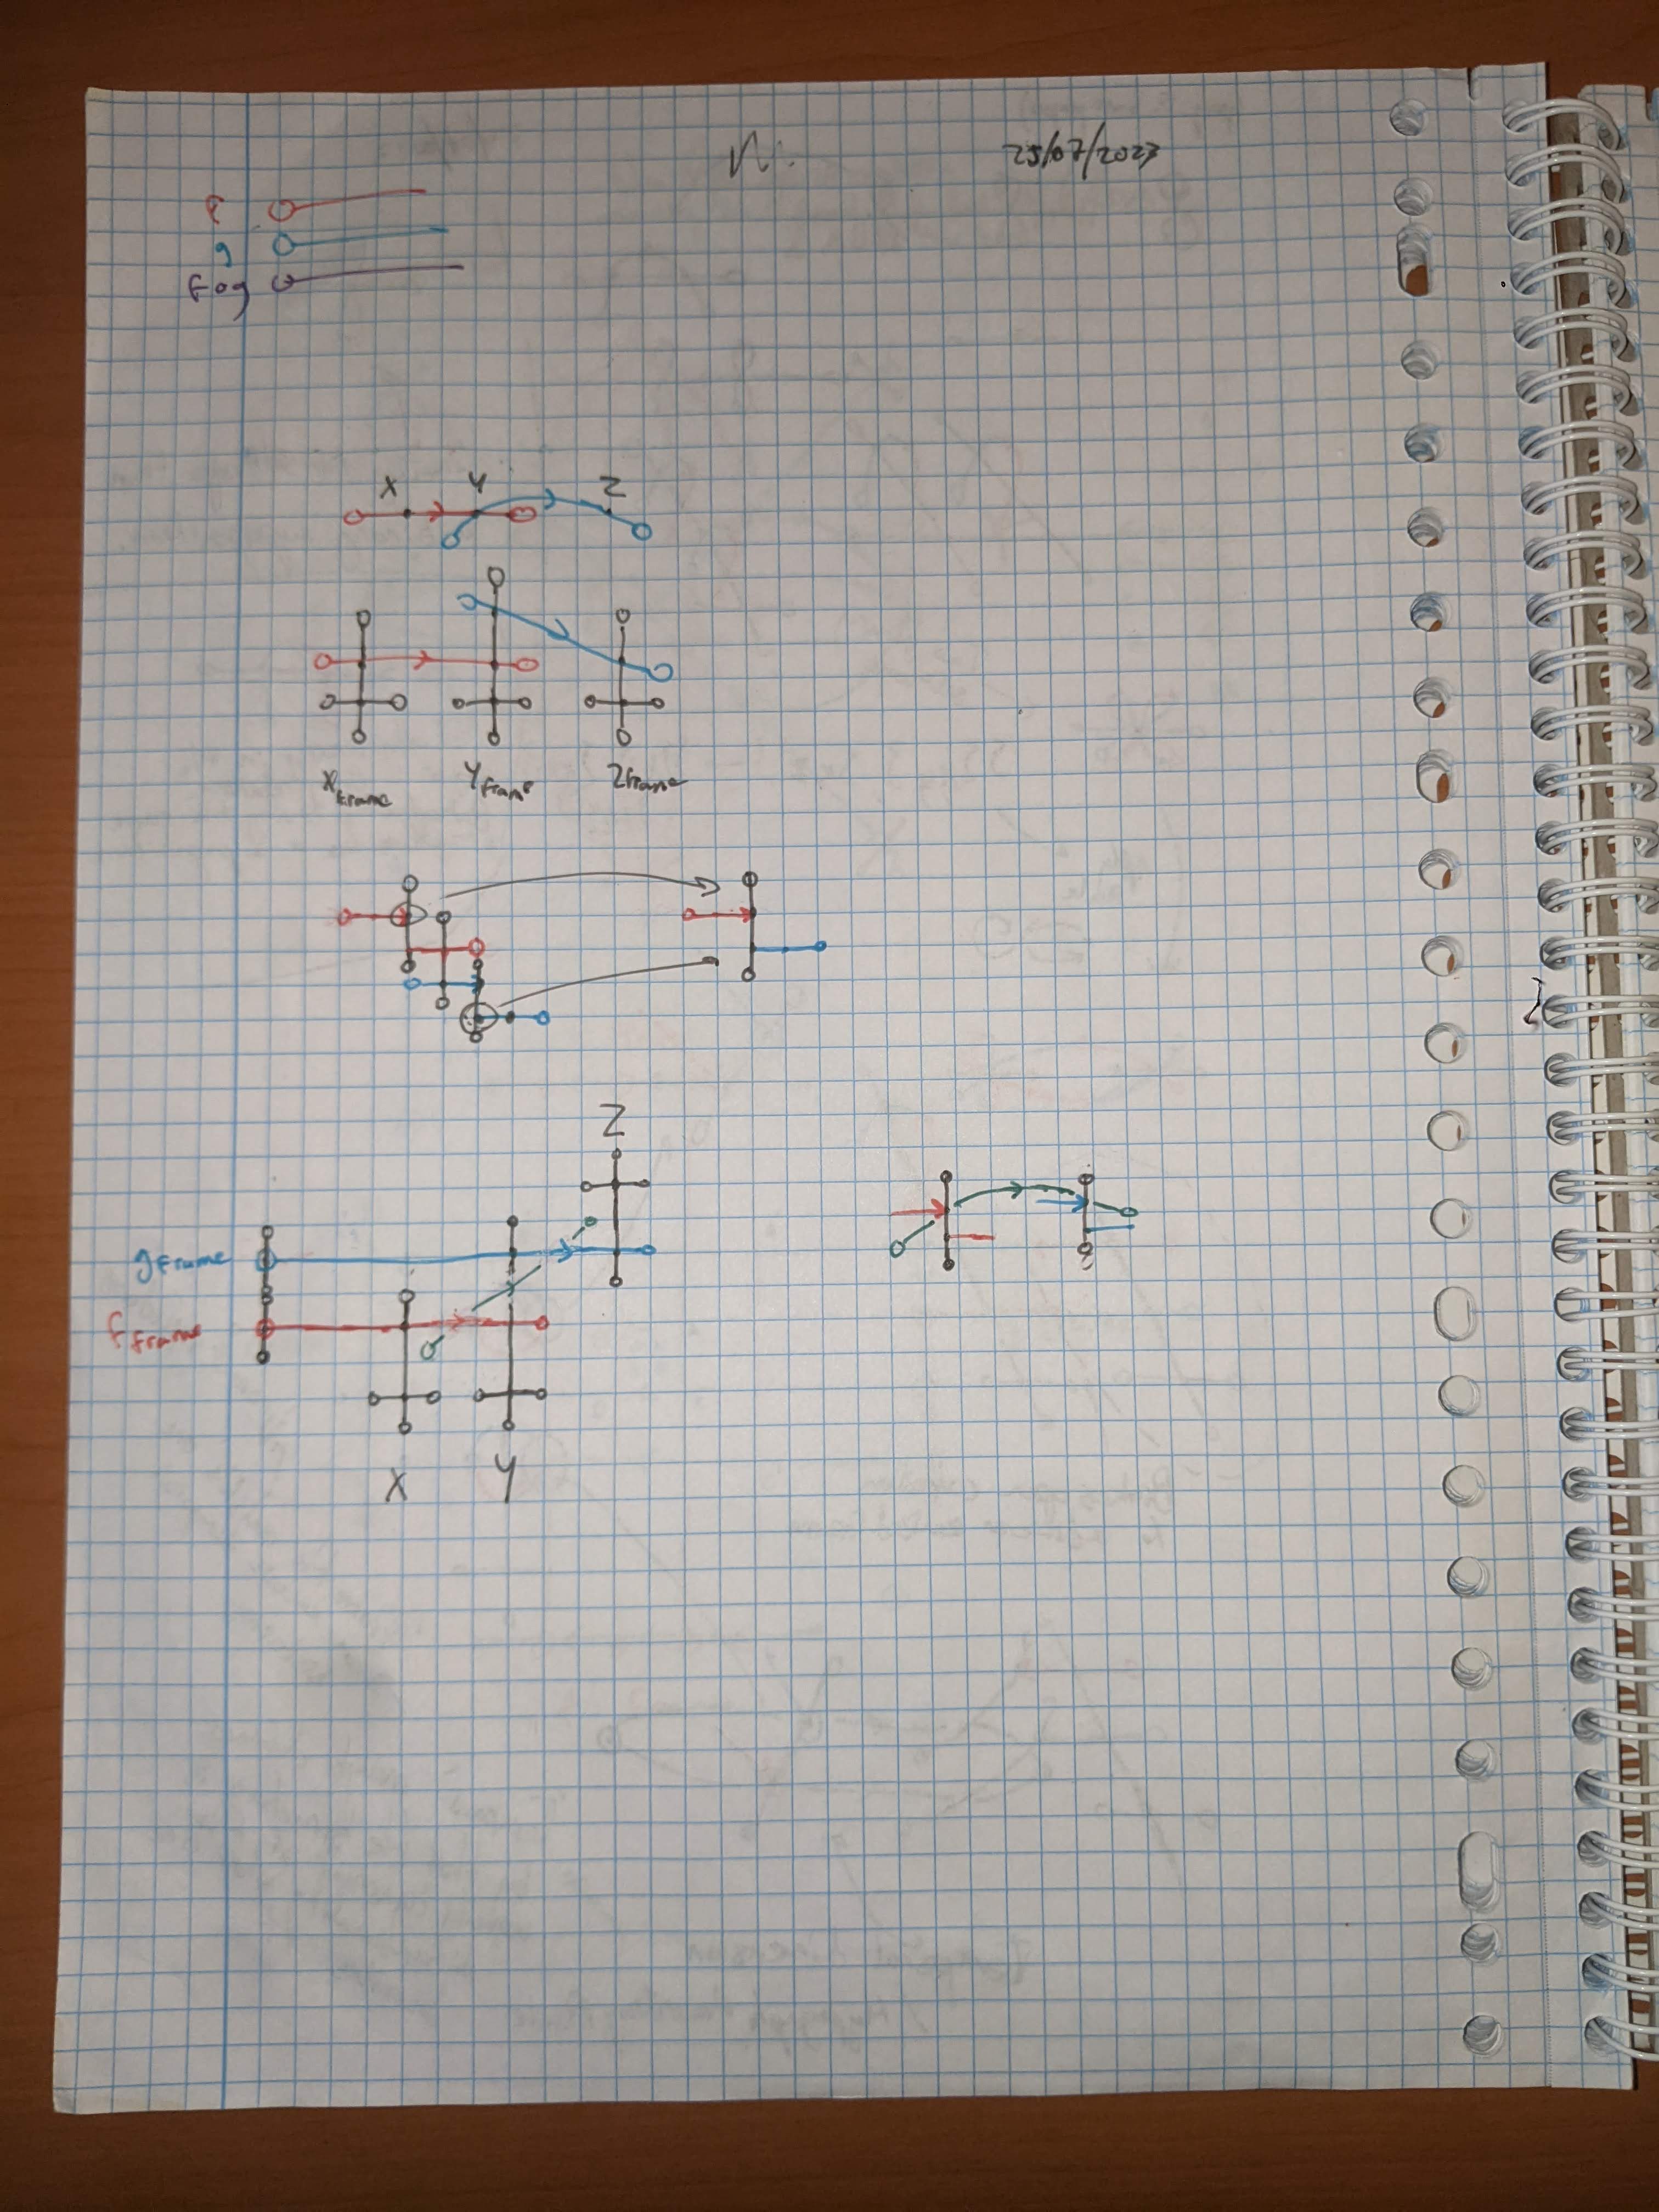 25/07/2023
f
g
fog
X Y Z
X Frame Y Frame Z Frame
Z
g Frame
f Frame
X Y